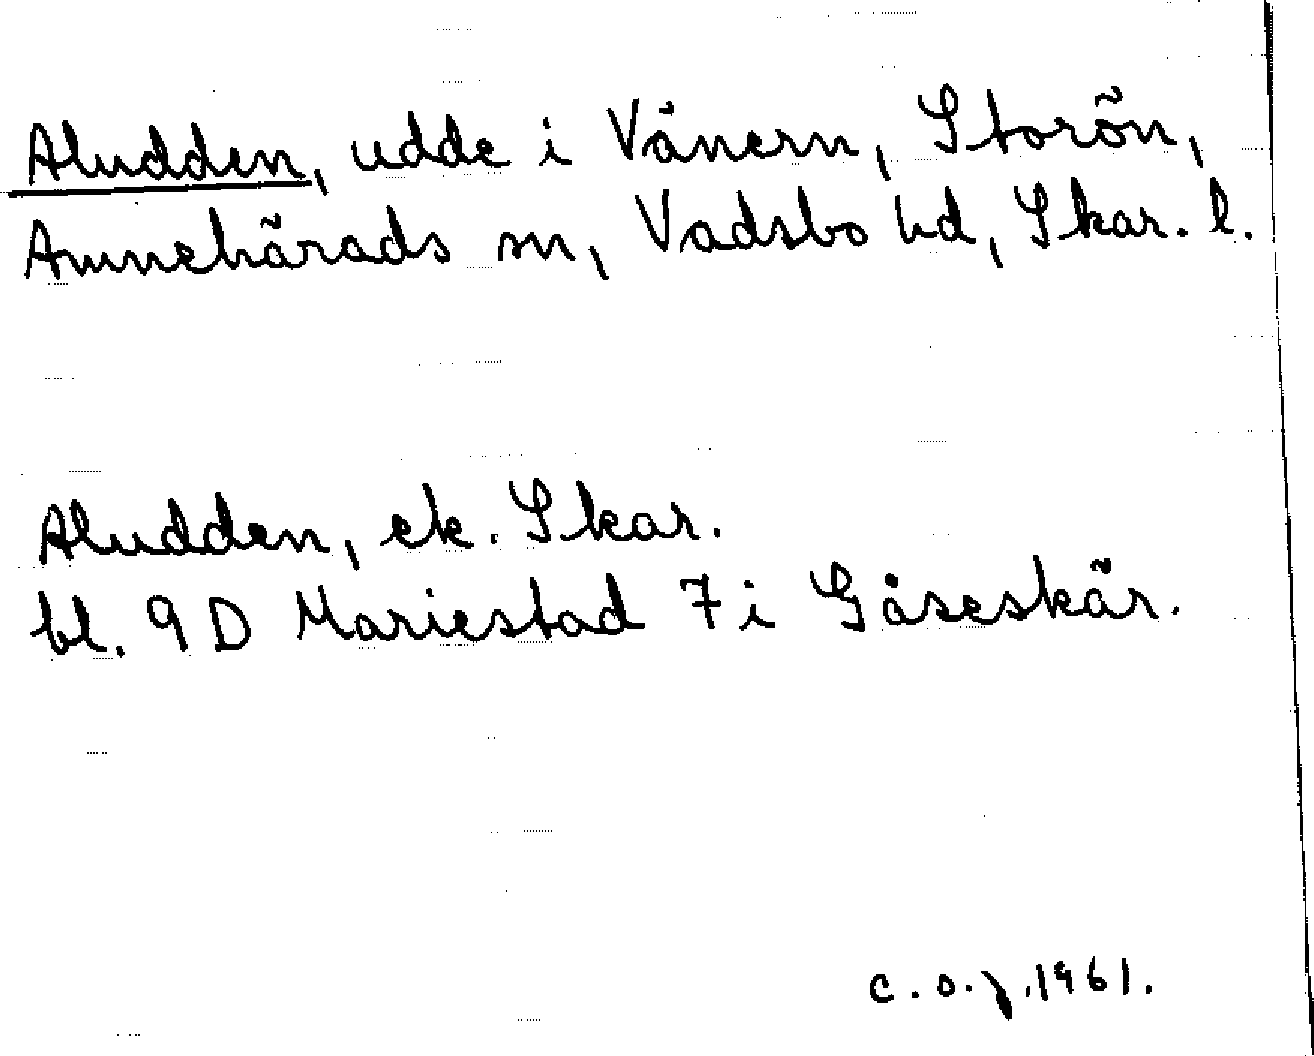 Aludden, udde i Vänern, Storön,
Amnehärads sn, Vadsbo hd, Skar. l.
Aludden, ek. Skar.
bl. 9 D Mariestad 7 i Gåseskär.
C. O. J. 1961.